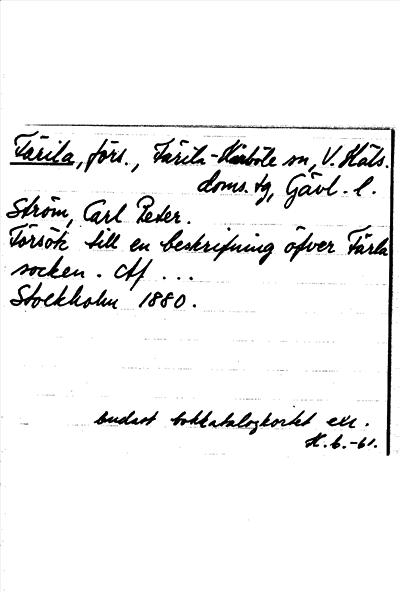 Färila, förs., Färila-Kårböle sn, V. Häls.
doms. tg, Gävl. l.
Ström, Carl Peter.
Försök till en beskrifning öfver Färla
socken. Af ...
Stockholm 1880.
endast bokkatalogkortet ex.
H. G. -61.